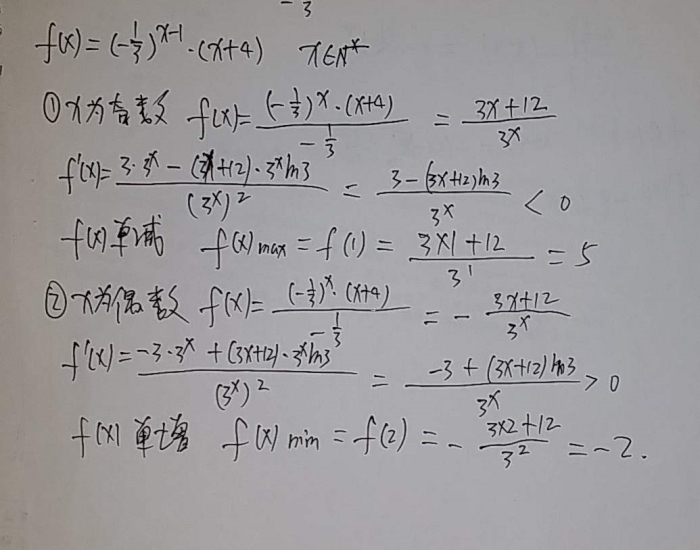 -3
f(x) = (-1/3)^(x-1) · (x+4)  x∈N*
①x为奇数 f(x) = ((-1/3)^x · (x+4))/(-1/3) = (3x+12)/3^x
f'(x) = (3·3^x - (3x+12)·3^x ln3)/(3^x)^2 = (3-(3x+12)ln3)/3^x < 0
f(x)单减 f(x)max = f(1) = (3×1+12)/3^1 = 5
②x为偶数 f(x) = ((-1/3)^x · (x+4))/(-1/3) = -(3x+12)/3^x
f'(x) = (-3·3^x + (3x+12)·3^x ln3)/(3^x)^2 = (-3+(3x+12)ln3)/3^x > 0
f(x)单增 f(x)min = f(2) = -(3×2+12)/3^2 = -2.